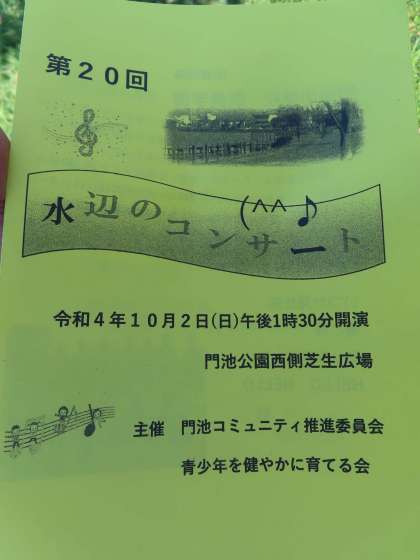 第20回
水辺のコンサート(^^♪
令和4年10月2日(日)午後1時30分開演
門池公園西側芝生広場
主催 門池コミュニティ推進委員会
青少年を健やかに育てる会